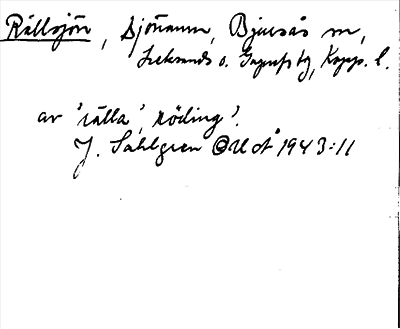 Rällsjön, sjönamn, Bjursås sn,
Leksands o. Gagnefs tg, Kopp. l.
av 'rälla', röding'.
J. Sahlgren OUÅ 1943:11